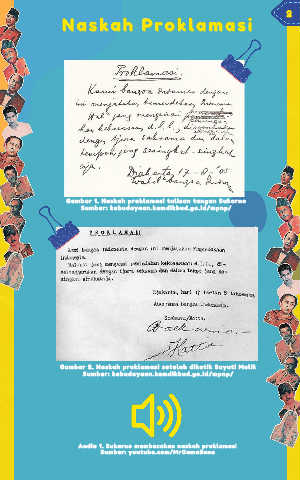 2
Naskah Proklamasi
Proklamasi.
Kami bangsa Indonesia dengan
ini menjatakan kemerdekaan Indonesia.
Hal2 jang mengenai
kekoeasaan d.l.l.,
dengan tjara saksama dan dalam
tempoh jang sesingkat-singkat
nja.
Djakarta, 17-8-'05
Wakil2 bangsa Indon
Gambar 1. Naskah proklamasi tulisan tangan Sukarno
Sumber: kebudayaan.kemdikbud.go.id/mpnp/
PROKLAMASI
Kami bangsa Indonesia dengan ini menjatakan Kemerdekaan
Indonesia.
Hal-hal jang mengenai pemindahan kekoeasaan d.l.l., di-
selenggarakan dengan tjara saksama dan dalam tempo jang se-
singkat-singkatnja.
Djakarta, hari 17 boelan 8 tahoen
Atas nama bangsa Indonesia.
Soekarno/Hatta.
Gambar 2. Naskah proklamasi setelah diketik Sayuti Melik
Sumber: kebudayaan.kemdikbud.go.id/mpnp/
Audio 1. Sukarno membacakan naskah proklamasi